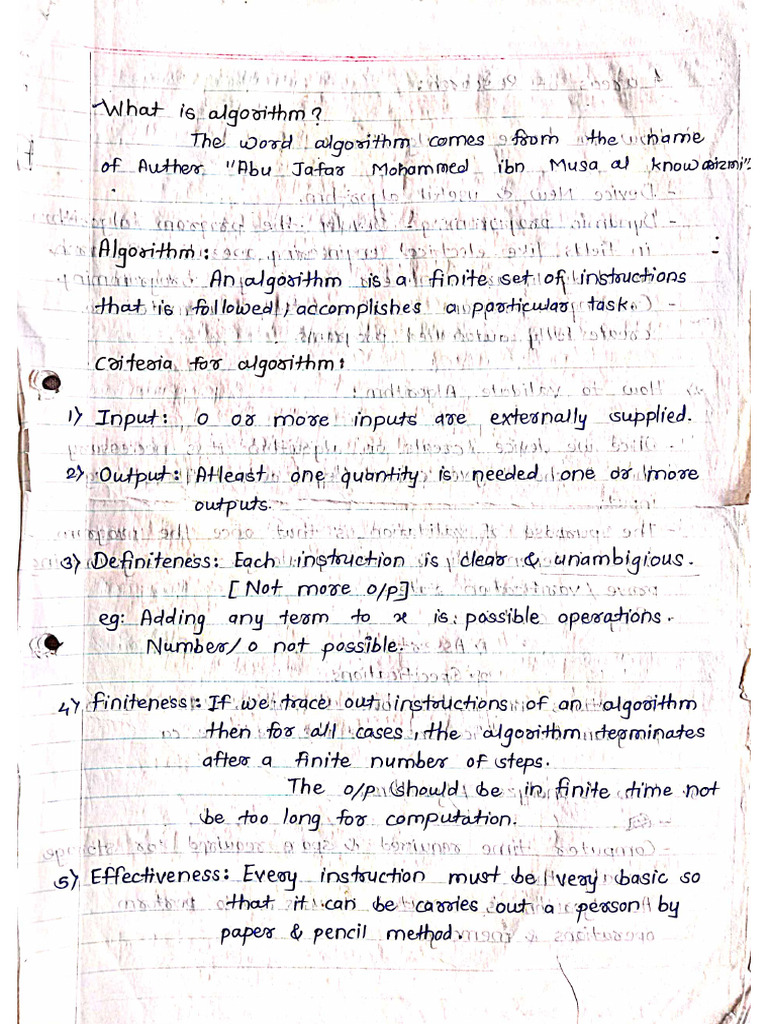 What is algorithm?
The word algorithm comes from the name
of Auther "Abu Jafar Mohammed ibn Musa al knowarizmi".
Algorithm:
An algorithm is a finite set of instructions
that is followed, accomplishes a particular task.
Criteria for algorithm:
1) Input: 0 or more inputs are externally supplied.
2) Output: Atleast one quantity is needed one or more
outputs.
3) Definiteness: Each instruction is clear & unambigious.
[Not more o/p]
eg: Adding any term to x is possible operations.
Number/0 not possible.
4) finiteness: If we trace out instructions of an algorithm
then for all cases, the algorithm terminates
after a finite number of steps.
The o/p should be in finite time not
be too long for computation.
5) Effectiveness: Every instruction must be very basic so
that it can be carries out a person by
paper & pencil method.